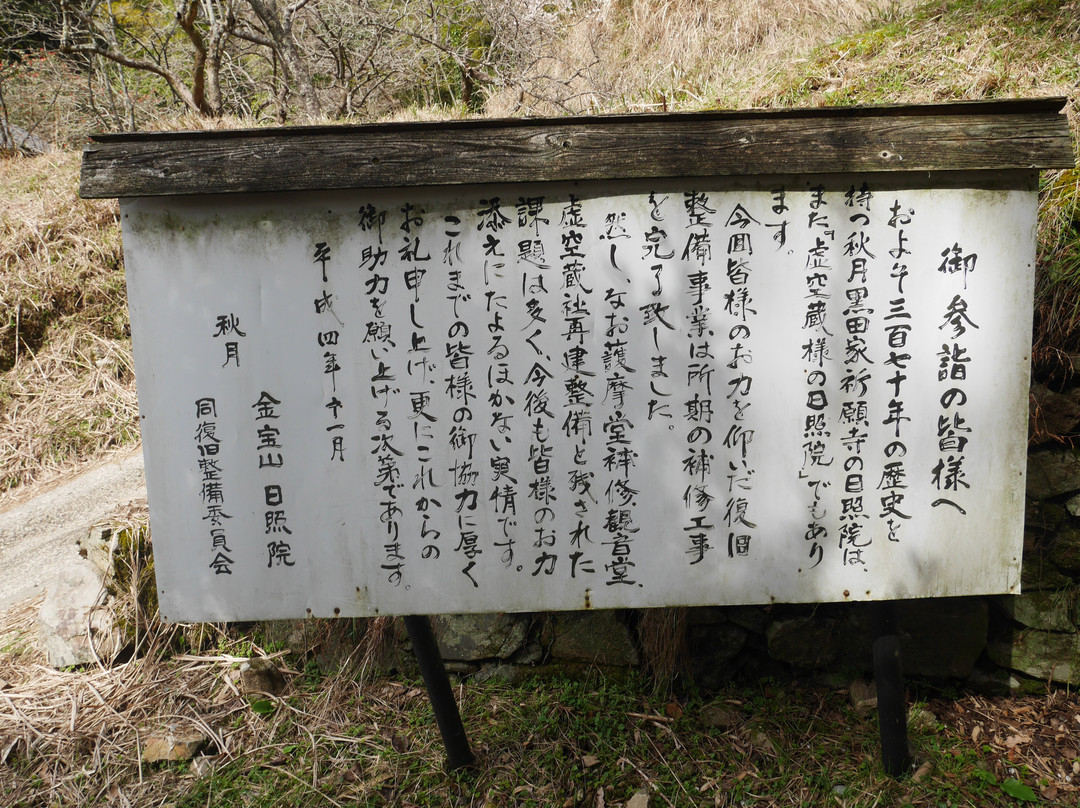 御参詣の皆様へ
およそ三百七十年の歴史を
持つ秋月黒田家祈願寺の日照院は、
また『虚空蔵様の日照院』でもあり
ます。
今回皆様のお力を仰いだ復旧
整備事業は所期の補修工事
を完了致しました。
然し、なお護摩堂補修観音堂、
虚空蔵社再建整備と残された
課題は多く、今後も皆様のお力
添えにたよるほかない実情です。
これまでの皆様の御協力に厚く
お礼申し上げ、更にこれからの
御助力を願い上げる次第であります。
平成四年十一月
金宝山 日照院
秋月
同復旧整備委員会